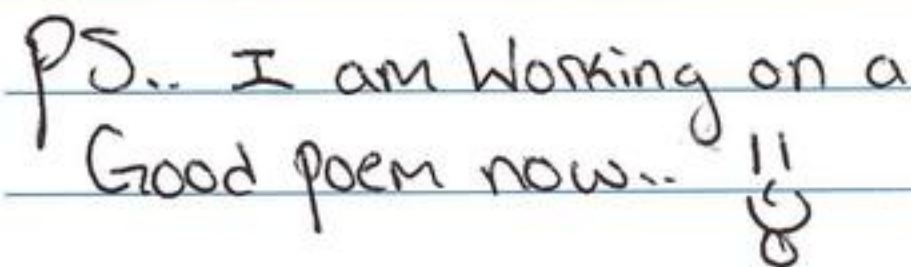 PS.. I am Working on a
Good poem now..